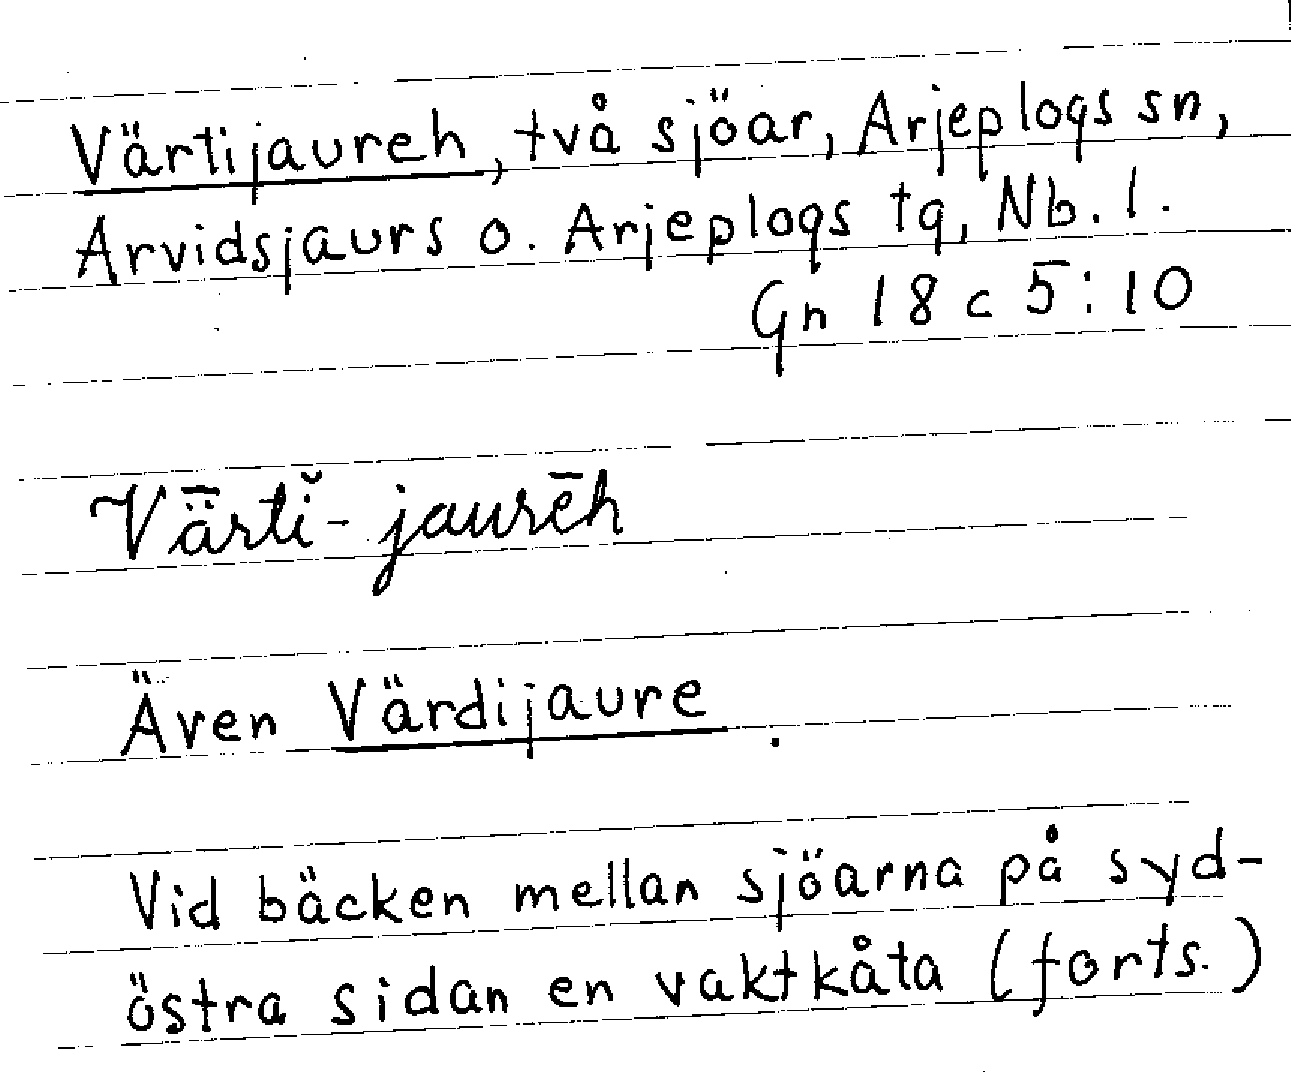 Värtijaureh, två sjöar, Arjeplogs sn,
Arvidsjaurs o. Arjeplogs tg, Nb. l.
Gn 18 c 5:10
Vǟrtĭ-jaurēh
Även Värdijaure.
Vid bäcken mellan sjöarna på syd-
östra sidan en vaktkåta (forts.)